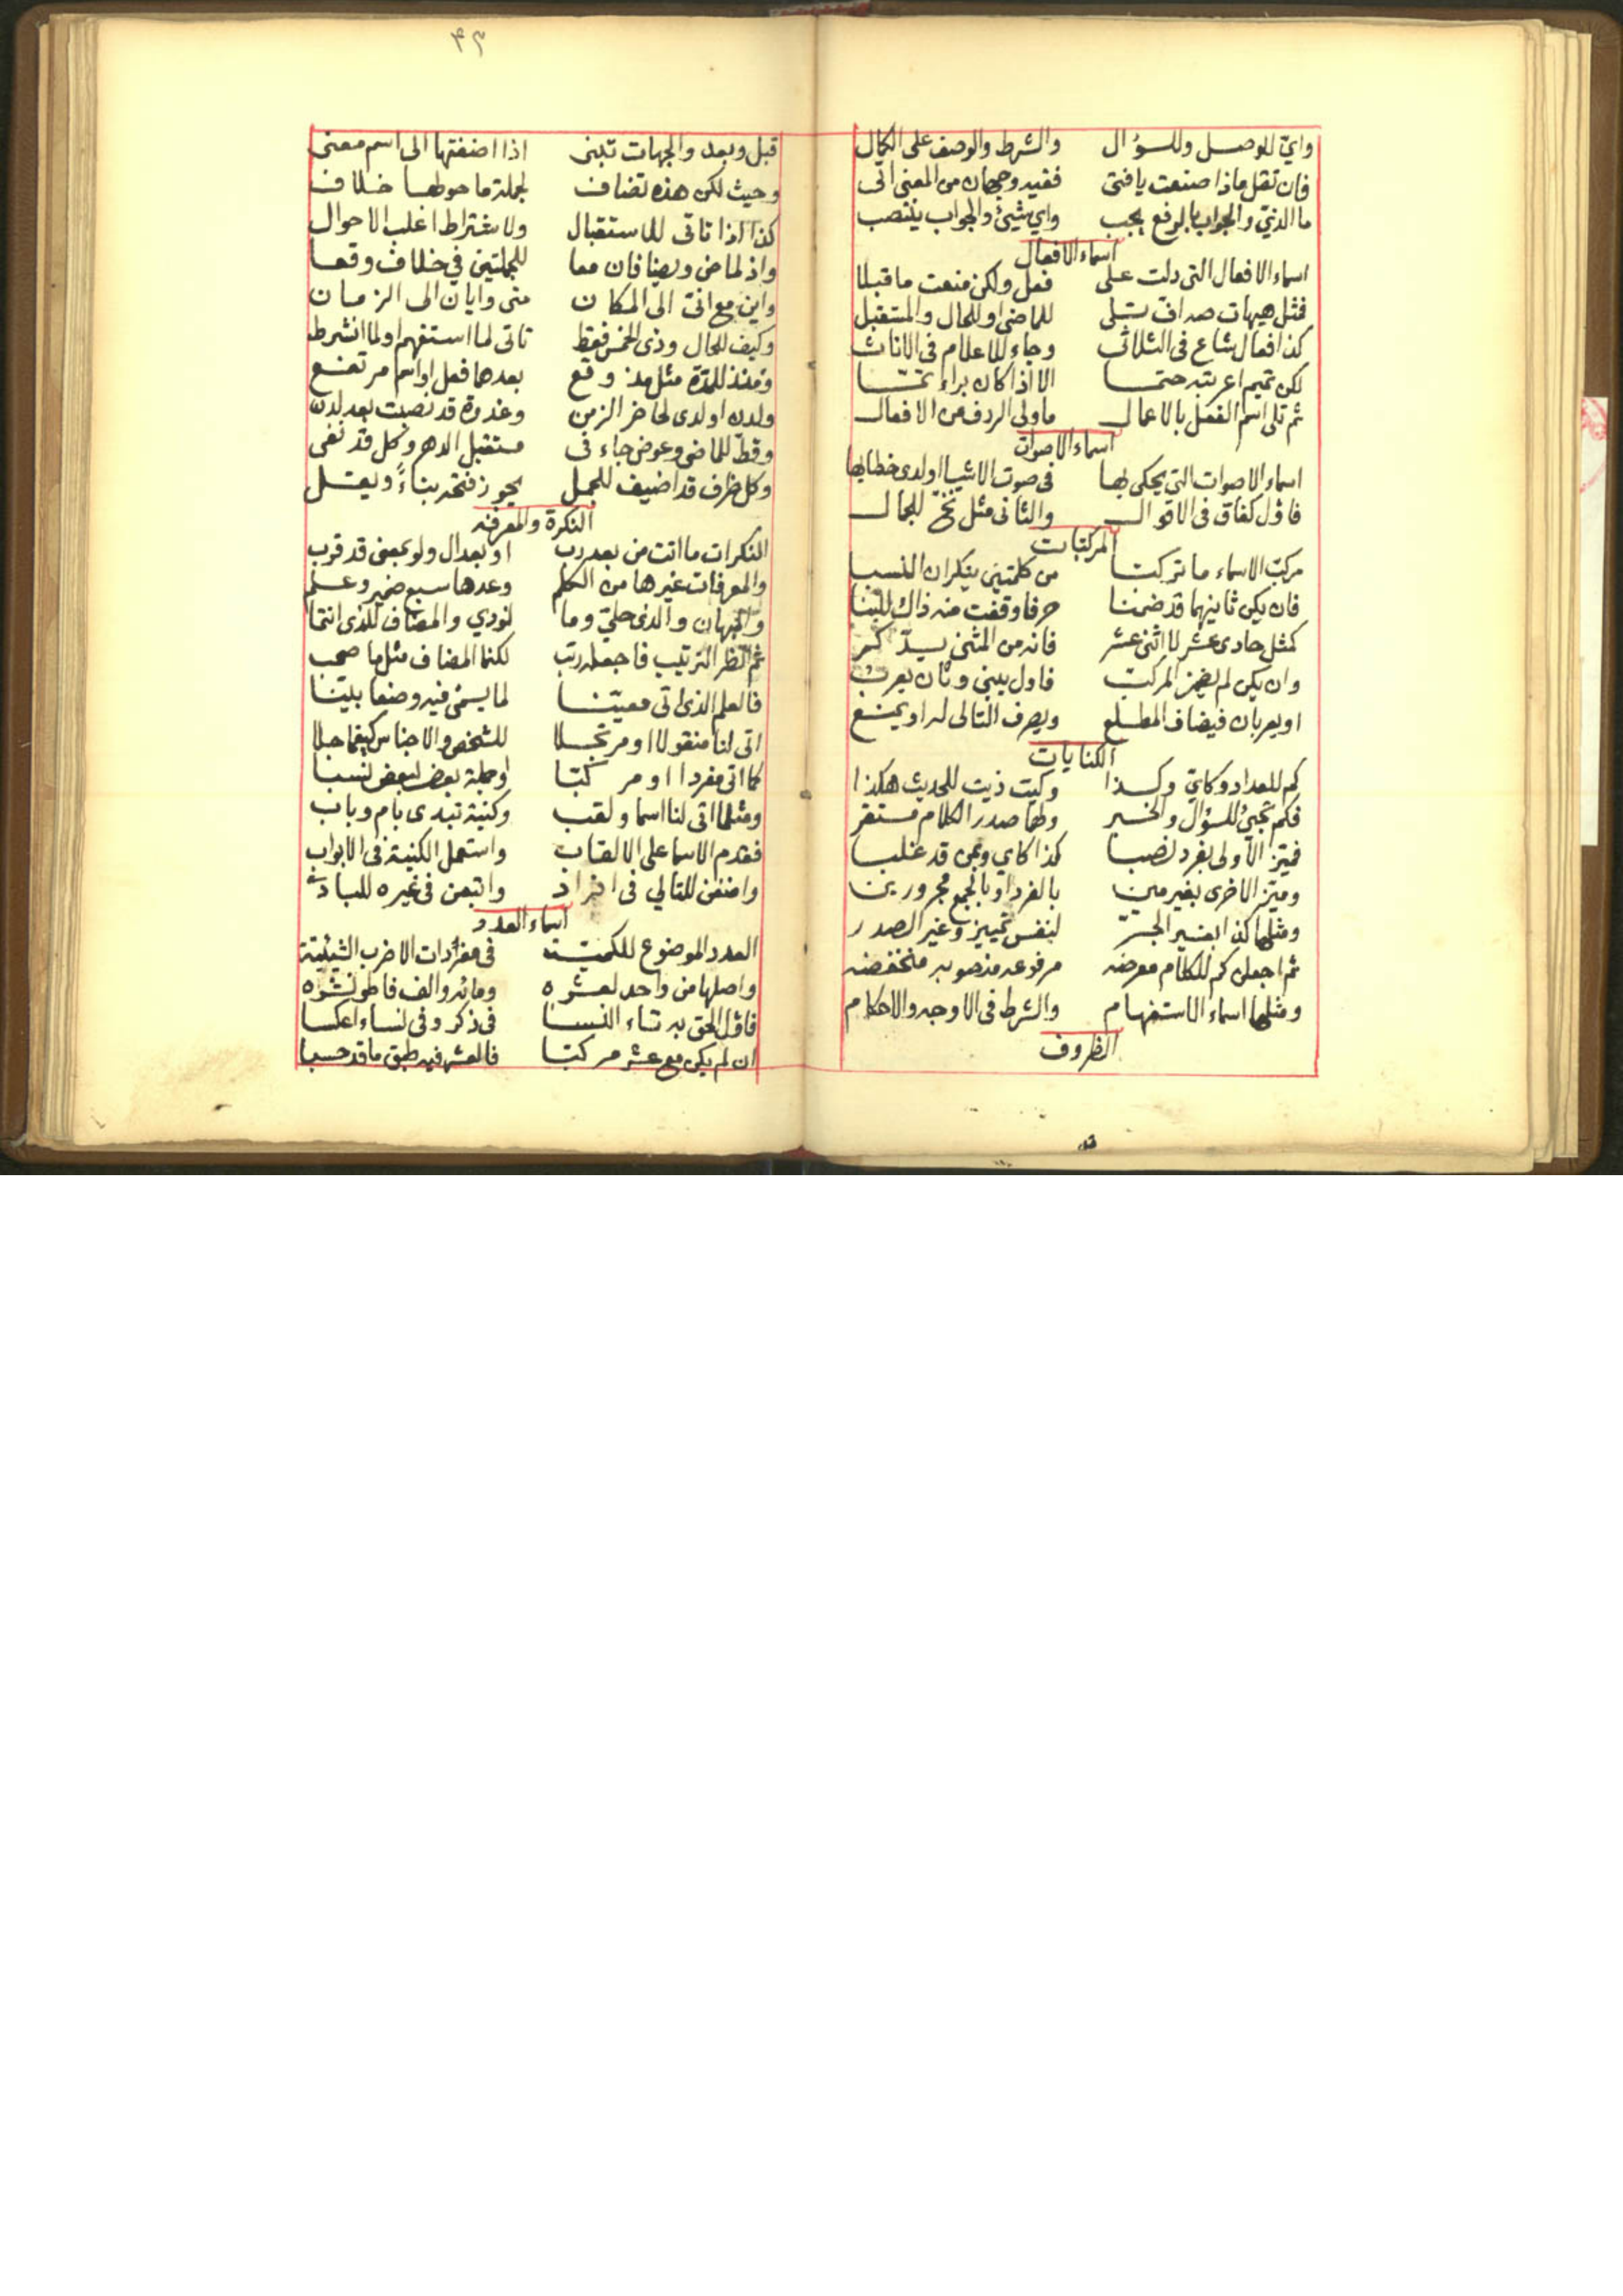 وايّ للوصل وللسؤال والشرط والوصف على الكمال
فان تقل ماذا صنعت يا فتى ففيه وجهان من المعنى اتى
ما الذي والجواب بالرفع يجب واي شيئ والجواب ينتصب
اسماء الافعال
اسماء الافعال التى دلت على فعل ولكن منعت ما قبلا
فمثل هيهات صه اف للماضي او للحال والمستقبل
كذا فعال شاع فى الثلاثى وجاء للاعلام فى الاناث
لكن تميم اعربته حتما الا اذا كان براء تمّا
ثم تلى اسم الفعل بالاعمال ما ولى الردف من الافعال
اسماء الاصوات
اسماء الاصوات التى يحكى بها فى صوت الاشيا او لدى خطابها
فاول كغاق فى الاقوال والثانى مثل نخّ للجمال
المركبات
مركب الاسماء ما تركبا من كلمتين ينكران النسبا
فان يكن ثانيهما قد ضمنا حرفا وقفت منه ذاك للبنا
كمثل حادى عشر لا اثنى عشر فانه من المثنى
وان يكن لم المركب فاول يبنى وثان يعرب
او يعربان فيضاف المطلع ويصرف التالى له او يمنع
الكنايات
كم للعداد وكايّ وكذا وكيت ذيت للحديث هكذا
فكم تجيئ للسؤال والخبر ولها صدر الكلام مستقر
فميّز الاولى بفرد نصبا كذا كاي وبمن قد غلبا
وميّز الاخرى بغير مين بالفرد او بالجمع مجرورين
ومثلها كذا بغير الجرّ لنفس تمييز وغير الصدر
ثم اجعلن كم للكلام معرضه مرفوعه منصوبه منخفضه
ومثلها اسماء الاستفهام والشرط فى الاوجه والاحكام
الظروف
٤٣
قبل وبعد والجهات تبنى اذا اضفتها الى اسم معنى
وحيث لكن هذه تضاف لجملة ما حولها خلاف
كذا اذا تاتى للاستقبال ولاشتراط اغلب الاحوال
واذ لماض فان معا للجملتين في خلاف وقعا
واين مع انى الى المكان متى وايان الى الزمان
وكيف للحال وذى الخمس فقط تاتى لما استفهم او لما انشرط
ومنذ للمدة مثل مذ وقع بعدها فعل او اسم مرتفع
ولدن او لدى لحاضر الزمن وغدوة قد نصبت بعد لدن
وقطّ للماضى وعوض جاء فى مستقبل الدهر وكل قد نفى
وكل ظرف قد اضيف للجمل يجوز فتحه بناءً ويقل
النكرة والمعرفه
النكرات ما اتت من بعد رب او بعد ال ولو بمعنى قد قرب
والمعرفات غيرها من الكلم وعدها سبع ضمير وعلم
والمبهان والذى حلى وما نودي والمضاف للذى انتما
ثم انظر الترتيب فاجعله رتب لكنما المضاف مثل ما صحب
فالعلم الذى اتى معيّنا لما يسمى فيه وضعا بيّنا
اتى لنا منقولا او مرتجلا للشخص والاجناس كيفما حلا
كما اتى مفردا او مركبا او جملة بعض لبعض نسبا
ومثلما اتى لنا اسما ولقب وكنية تبدى بام وباب
فقدم الاسما على الالقاب واستعمل الكنية فى الابواب
واضفن للتالي فى افراد واتبعن فى غيره للبادى
اسماء العدد
العدد الموضوع للكميّة فى مفردات الاضرب الشيئيّة
واصلها من واحد لعشره ومائه والف فاطو نشره
فاول الحق به تاء النسا فى ذكر وفى نساء اعكسا
ان لم يكن مع عشر مركبا فالعشر فيه طبق ما قد حسبا